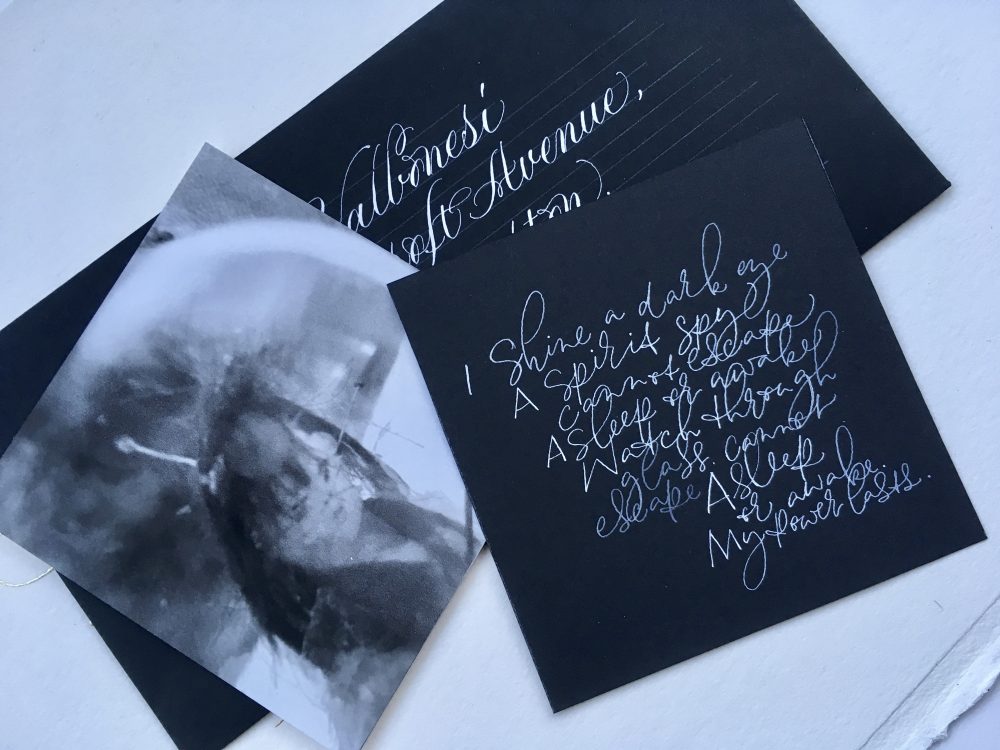 Valbonesi
oft Avenue,
ton.
I Shine a dark eye
A Spirit Spy
cannot escape
Asleep or awake
Watch through
glass. cannot
escape Asleep
or awake
My Power Casts.